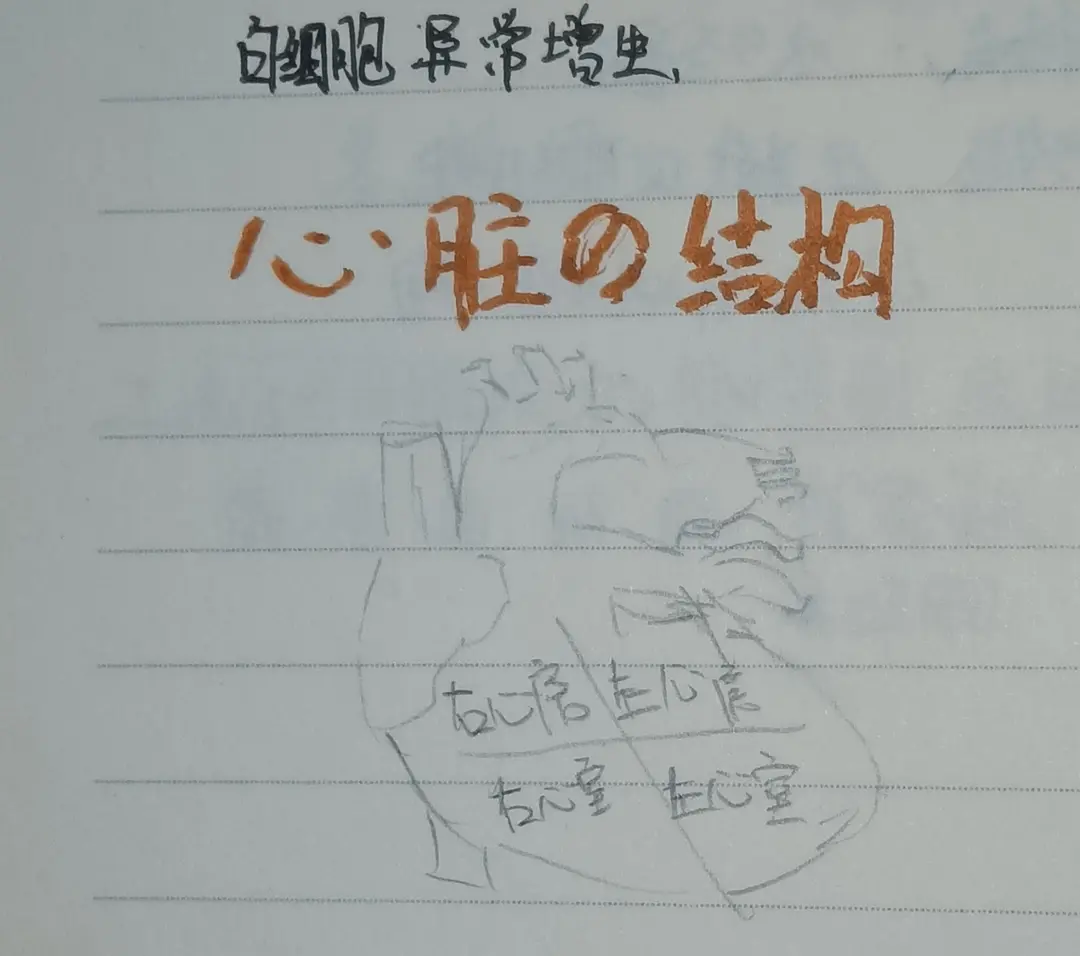 白细胞异常增生.
心脏の结构
右心房 左心房
右心室 左心室